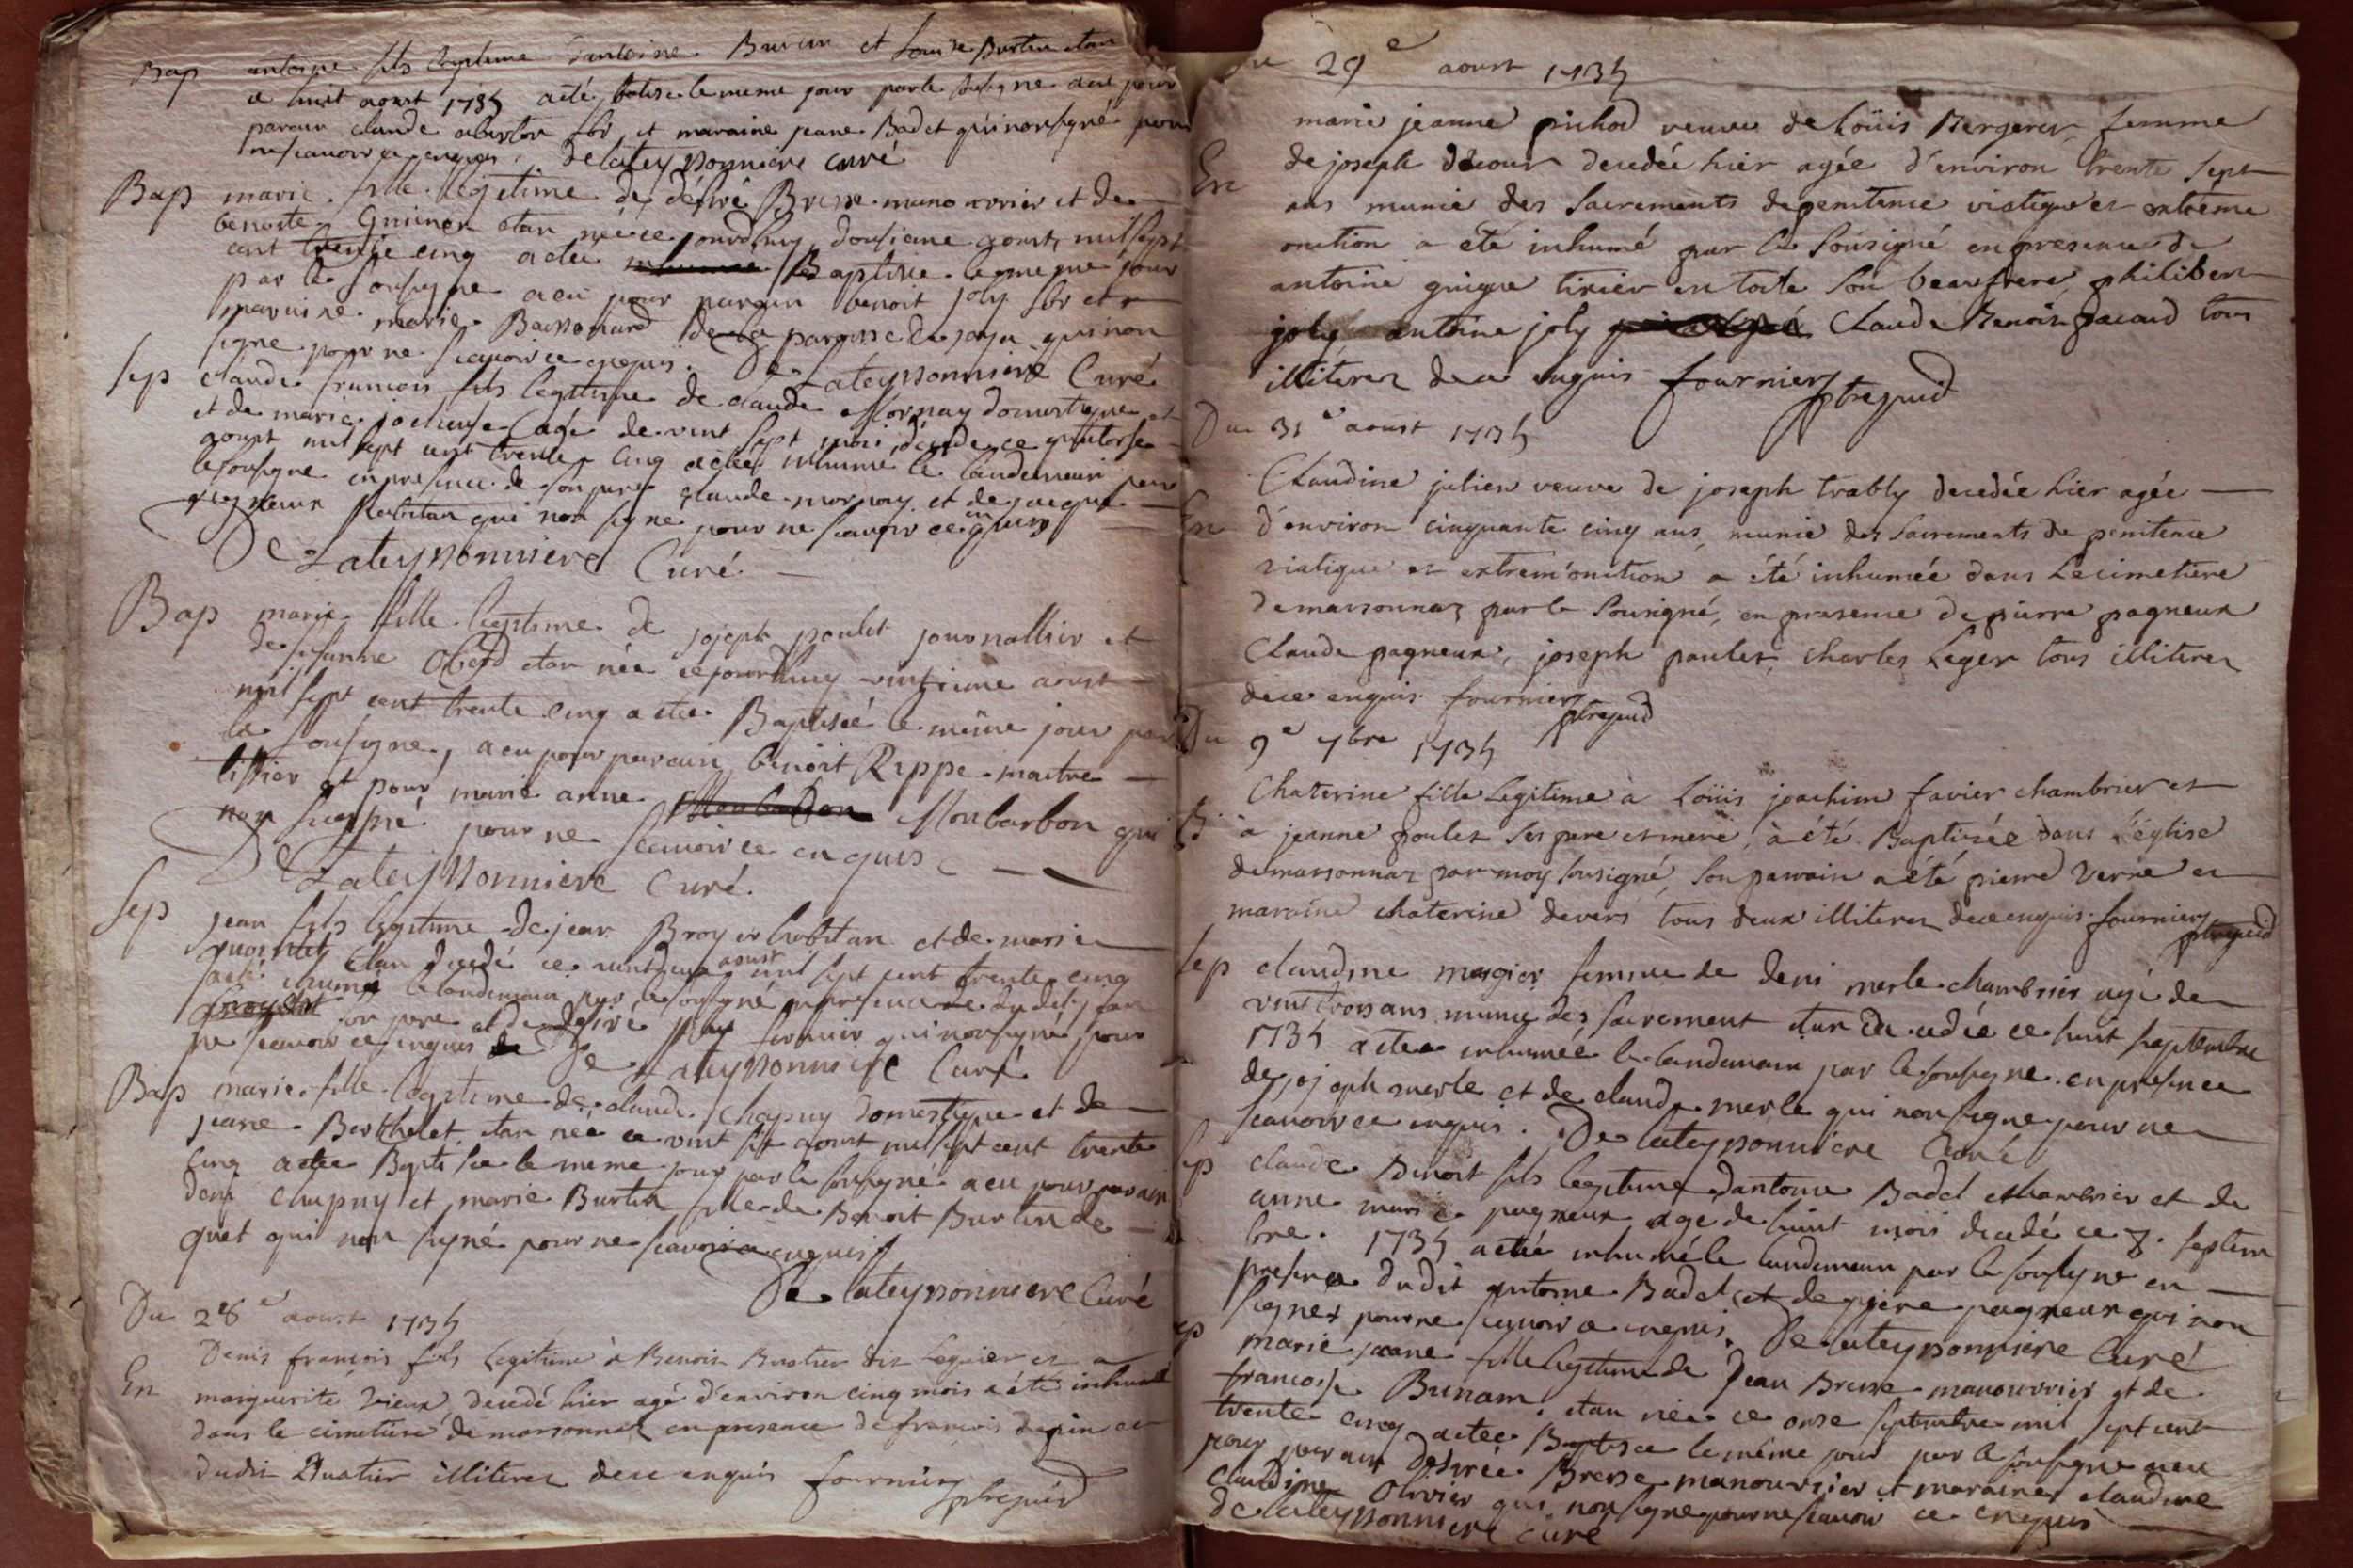 Bap antoine fils legitime d'antoine Burtin et Louise Burtin etan
ce huit aoust 1735 a eté batise le meme jour par le sousigne a eu pour
parain claude et maraine jeane Badet qui non signé pour
ne scauoir ce enquis. De Lateyssonniere curé
Bap marie fille legitime de désiré Bresse manouvrier et de
benoite Guinon etan née ce jourdhuy dousieme aoust mil sept
cent trente cinq a etée Baptisée le meme jour
par le sousigne a eu pour parain benoit joly et
maraine marie de la paroisse de qui non
signe pour ne scauoir ce enquis. De Lateyssonniere Curé
sep claude francois fils legitime de claude Mornay domestique
et de marie agé de vint sept mois décédé ce quatorse
aoust mil sept cent trente cinq a eté inhumé le landemain par
le sousigne en presence de son pere claude mornay et de jacque
pagneux habitan qui non signé pour ne scauoir ce enquis
De Lateyssonniere Curé
Bap marie fille legitime de joseph poulet journallier et
de susanne etan née ce jourdhuy vintieme aoust
mil sept cent trente cinq a etée Baptisée le même jour par
le sousigne, a eu pour parain benoit Rippe maitre
tissier et pour marie anne Monbarbon qui
non signé pour ne scauoir ce enquis
De Lateyssonniere Curé.
sep jean fils legitime de jean Broyer habitan et de marie
etan decedé ce vintdeux aoust mil sept cent trente cinq
a eté inhumé le landemain par le sousigné en presence de dudit jean
son pere et de desiré qui non signe pour
ne scauoir ce enquis De Lateyssonniere Curé
Bap marie fille legitime de claude Chapuy Domestique et de
jeane Berthelet etan née ce vint sit aoust mil sept cent trente
cinq a etée Baptisée le meme jour par le sousigné a eu pour parain
deni Chapuy et marie Burtin fille de Benoit Burtin de
quet qui non signé pour ne scauoir ce enquis
De Lateyssonniere Curé
Du 28e aoust 1735
Denis françois fils Legitime à Benoit Buatier dit Leguier et a
En marguerite vieux decedé hier agé d'environ cinq mois a été inhumé
dans le cimetiere de marsonnaz en presence de françois dupin et
dudit Buatier illiterez de ce enquis fournier ptre quid
Du 29e aoust 1735
marie jeanne pichod veuve de Loüis Bergeret femme
En de joseph decour decedée hier agée d'environ trente sept
ans munie des Sacrements de penitence viatique et extreme
onction a eté inhumé par le sousigné en presence de
antoine guigue tixier en toile son beaufrere philibert
joly antoine joly Claude Benoit pacaud tous
illiterez de ce enquis fournier ptre quid
Du 31e aoust 1735
Claudine julien veuve de joseph trably decedée hier agée
En d'environ cinquante cinq ans, munie des sacrements de penitence
viatique et extrem'onction a été inhumée dans Le cimetiere
de marsonnaz par le sousigné, en presence de pierre pagneux
Claude pagneux, joseph paulet, charles Leger tous illiterez
de ce enquis fournier ptre quid
Du 9e 7bre 1735
Chaterine fille Legitime à Loüis joachim favier chambrier et
B à jeanne poulet ses pere et mere, à été Baptisée dans L'église
de marsonnaz par moy sousigné, son parrain a été pierre Verne et
maraine chaterine devers tous deux illiterez de ce enquis fournier ptre quid
sep claudine femme de deni merle chambrier agé de
vint trois ans munie des sacrement etan decedée ce huit septembre
1735 a etée inhumée le landemain par le sousigne en presence
de joseph merle et de claude merle qui non signe pour ne
scauoir ce enquis. De Lateyssonniere Curé
sep claude Benoit fils legitime d'antoine Badel chambrier et de
anne marie pagneux agé de huint mois decedé ce 8. septem
bre. 1735 a eté inhumé le landemain par le sousigne en
presence dudit antoine Badel et de piere pagneux qui non
signe pour ne scauoir ce enquis. De Lateyssonniere Curé
marie jeane fille legitime de Jean Bresse manouvrier et de
francoise Bunam etan née ce onse septembre mil sept cent
trente cinq a etée Baptisée le même jour par le sousigne a eu
pour parain desirée Bresse manouvrier et maraine claudine
Claudine Olivier qui non signe pour ne scauoir ce enquis
De Lateyssonniere Curé